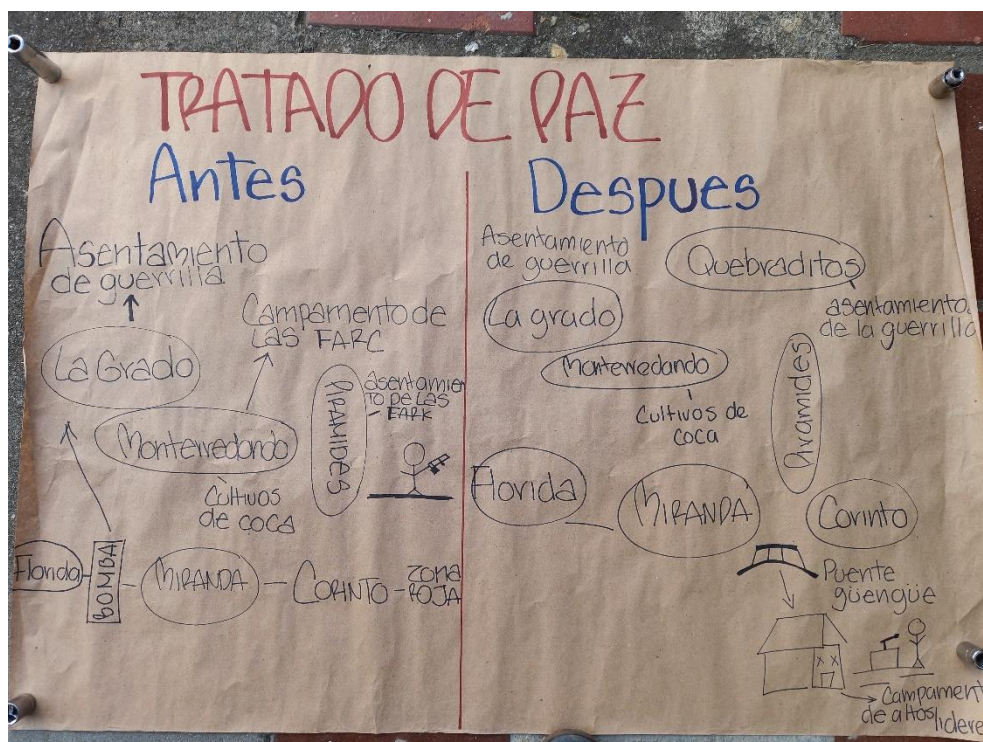 TRATADO DE PAZ
Antes
Asentamiento
de guerrilla
La Grado
Campamento de
LAS FARC
Monterredondo
Cultivos
de coca
PIRAMIDES
asentamie
to DE LAS
FARK
Florida
BOMBA
MIRANDA
CORINTO
ZONA
ROJA
Despues
Asentamiento
de guerrilla
La grado
Quebraditos
asentamiento
de la guerrilla
Monterredando
Cultivos de
coca
Piramides
Florida
MIRANDA
Corinto
Puente
güengüe
Campament
de altos lidere